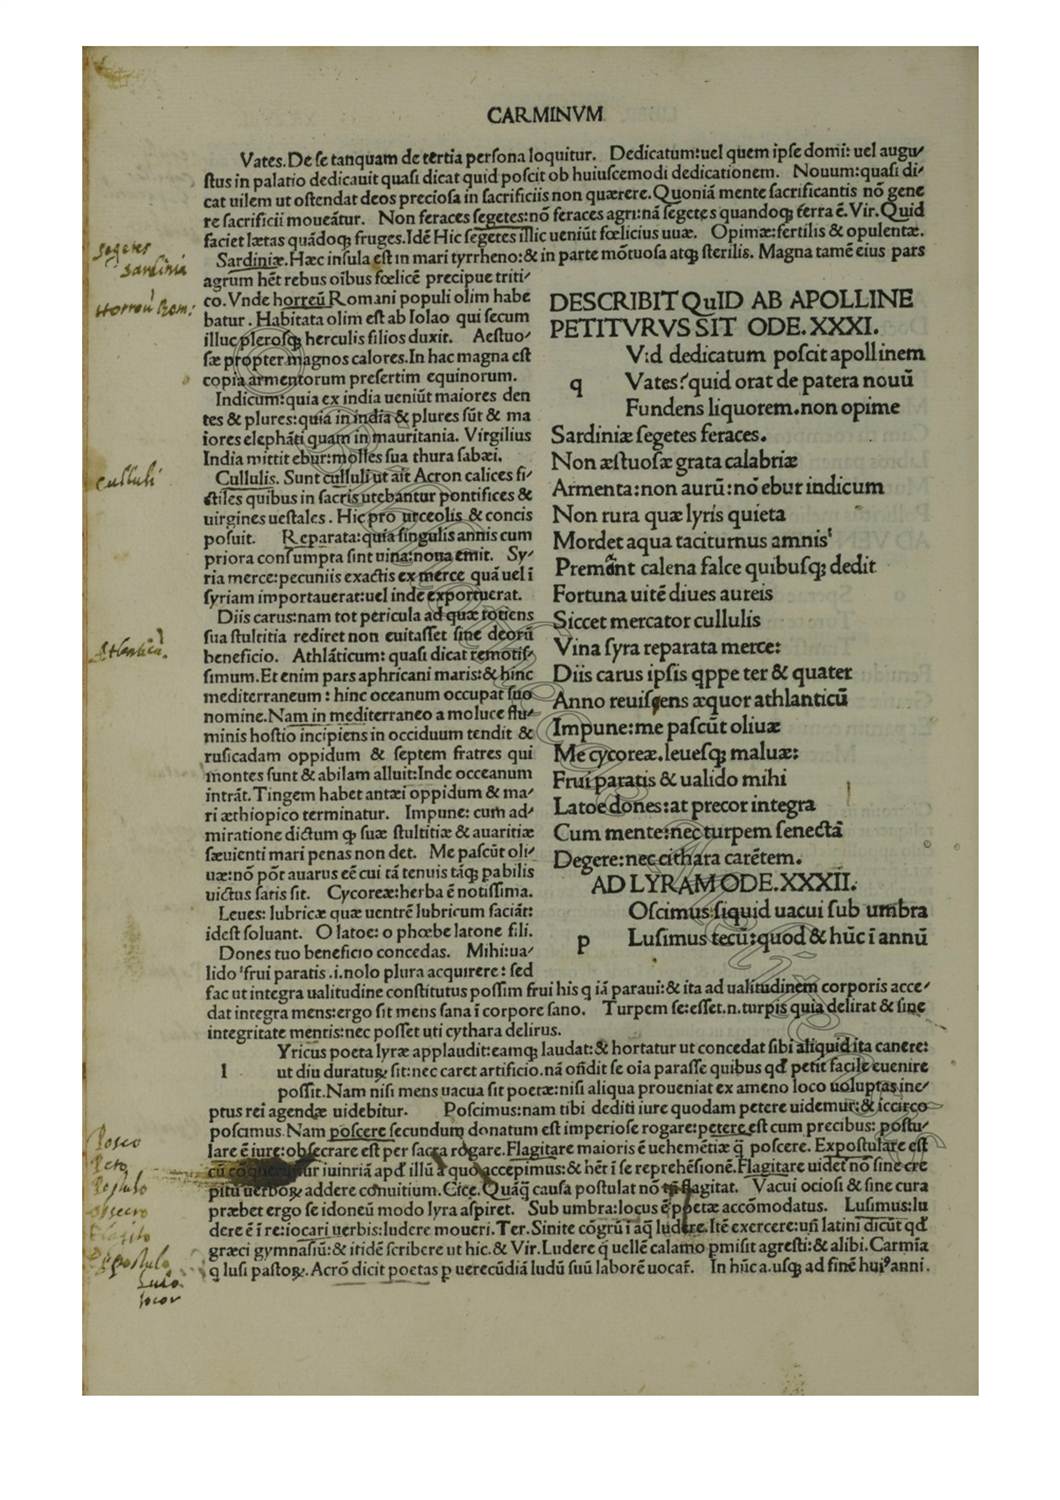 CARMINVM
Vates. De se tanquam de tertia persona loquitur. Dedicatum: uel quem ipse domi: uel augu/
stus in palatio dedicauit quasi dicat quid poscit ob huiuscemodi dedicationem. Nouum: quasi di/
cat uilem ut ostendat deos preciosa in sacrificiis non quærere. Quoniā mente sacrificantis nō gene
re sacrificii moueātur. Non feraces segetes: nō feraces agri: nā segetes quandoqꝫ terra ē. Vir. Quid
faciet lætas quādoqꝫ fruges. Idē Hic segetes illic ueniūt fœlicius uuæ. Opimæ: fertilis & opulentæ.
Sardiniæ. Hæc insula est in mari tyrrheno: & in parte mōtuosa atqꝫ sterilis. Magna tamē eius pars
agrum hēt rebus oībus fœlicē precipue triti/
co. Vnde horreū Romani populi olim habe
batur. Habitata olim est ab Iolao qui secum
illuc plerosqꝫ herculis filios duxit. Aestuo/
sæ propter magnos calores. In hac magna est
copia armentorum presertim equinorum.
Indicum: quia ex india ueniūt maiores den
tes & plures: quia in india & plures sūt & ma
iores elephāti quam in mauritania. Virgilius
India mittit ebur: molles sua thura sabæi.
Cullulis. Sunt culluli ut ait Acron calices fi/
ctiles quibus in sacris utebantur pontifices &
uirgines uestales. Hic pro urceolis & concis
posuit. Reparata: quia singulis annis cum
priora consumpta sint uina: noua emit. Sy/
ria merce: pecuniis exactis ex merce quā uel ī
syriam importauerat: uel inde exportuerat.
Diis carus: nam tot pericula ad quæ totiens
sua stultitia rediret non euitasset sine deorū
beneficio. Athlāticum: quasi dicat remotis/
simum. Et enim pars aphricani maris: & hinc
mediterraneum: hinc oceanum occupat suo
nomine. Nam in mediterraneo a moluce flu/
minis hostio incipiens in occiduum tendit &
rusicadam oppidum & septem fratres qui
montes sunt & abilam alluit: Inde occeanum
intrāt. Tingem habet antæi oppidum & ma/
ri æthiopico terminatur. Impune: cum ad/
miratione dictum qꝫ suæ stultitiæ & auaritiæ
sæuienti mari penas non det. Me pascūt oli/
uæ: nō pōt auarus eē cui tā tenuis tāqꝫ pabilis
uictus satis sit. Cycoreæ: herba ē notissima.
Leues: lubricæ quæ uentrē lubricum faciāt:
idest soluant. O latoe: o phœbe latone fili.
Dones tuo beneficio concedas. Mihi: ua/
lido frui paratis .i. nolo plura acquirere: sed
DESCRIBIT QuID AB APOLLINE
PETITVRVS SIT ODE. XXXI.
V:d dedicatum poscit apollinem
q Vates? quid orat de patera nouū
Fundens liquorem. non opime
Sardiniæ segetes feraces.
Non æstuosæ grata calabriæ
Armenta: non aurū: nō ebur indicum
Non rura quæ lyris quieta
Mordet aqua taciturnus amnis
Premānt calena falce quibusqꝫ dedit
Fortuna uitē diues aureis
Siccet mercator cullulis
Vina syra reparata merce:
Diis carus ipsis qppe ter & quater
Anno reuisens æquor athlanticū
Impune: me pascūt oliuæ
Me cycoreæ. leuesqꝫ maluæ:
Frui paratis & ualido mihi
Latoe dones: at precor integra
Cum mente: nec turpem senectā
Degere: nec cithara carētem.
AD LYRAM ODE. XXXII.
Oscimus siquid uacui sub umbra
p Lusimus tecū: quod & hūc ī annū
fac ut integra ualitudine constitutus possim frui his q iā paraui: & ita ad ualitudinem corporis acce/
dat integra mens: ergo sit mens sana ī corpore sano. Turpem se: esset .n. turpis quia delirat & sine
integritate mentis: nec posset uti cythara delirus.
Yricus poeta lyræ applaudit: eamqꝫ laudat: & hortatur ut concedat sibi aliquid ita canere:
l ut diu duraturꝫ sit: nec caret artificio. nā ostīdit se oia parasse quibus qd petit facile euenire
possit. Nam nisi mens uacua sit poetæ: nisi aliqua proueniat ex ameno loco uoluptas ine/
ptus rei agendæ uidebitur. Poscimus: nam tibi dediti iure quodam petere uidemur: & iccirco
poscimus. Nam poscere secundum donatum est imperiose rogare: petere est cum precibus: postu/
lare ē iure: obsecrare est per sacra rogare. Flagitare maioris ē uehemētiæ q̄ poscere. Expostulare est
iuinriā apd illū a quo accepimus: & hēt ī se reprehēsionē. Flagitare uidet nō sine cre
pitu uerboꝝ addere conuitium. Cice. Quāq̄ causa postulat nō flagitat. Vacui ociosi & sine cura
præbet ergo se idoneū modo lyra aspiret. Sub umbra: locus ē poetæ accōmodatus. Lusimus: lu
dere ē ī re: iocari uerbis: ludere moueri. Ter. Sinite cōgrū ī aq̄ ludere. Itē exercere: uñ latini dicūt qd
græci gymnasiū: & itidē scribere ut hic. & Vir. Ludere q̄ uellē calamo pmisit agresti: & alibi. Carmīa
q lusi pastoꝝ. Acrō dicit poetas p uerecūdiā ludū suū laborē uocar. In hūc a. usqꝫ ad finē hui⁹ anni.
segetes
sardinia
Horreū Rom:
Culluli
Athlanticū.
Posco
Peto
Postulo
obsecro
Flagito
Expostulo
Ludo
Iocor